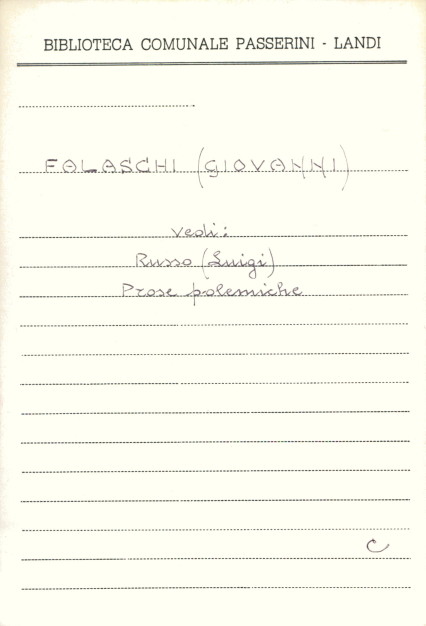 BIBLIOTECA COMUNALE PASSERINI - LANDI
FALASCHI (GIOVANNI)
Vedi:
Russo (Luigi)
Prose polemiche
C